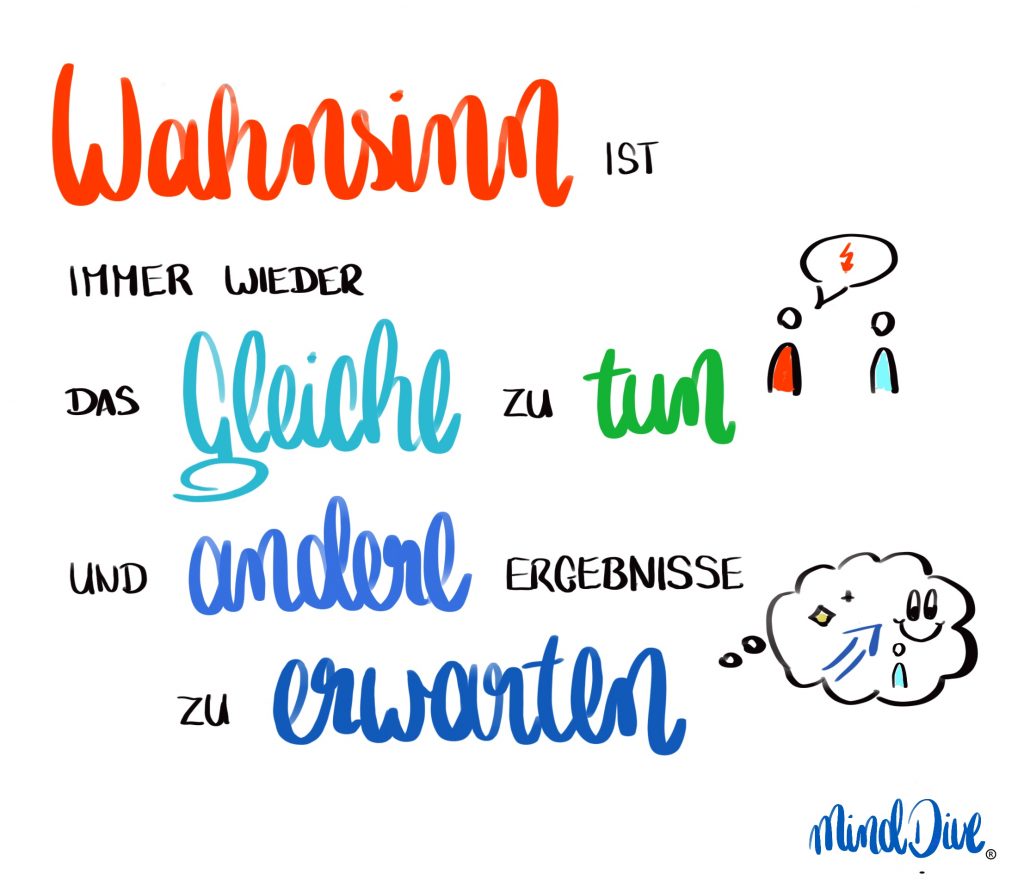 Wahnsinn IST
IMMER WIEDER
DAS Gleiche ZU tun
UND andere ERGEBNISSE
ZU erwarten
MindDive®